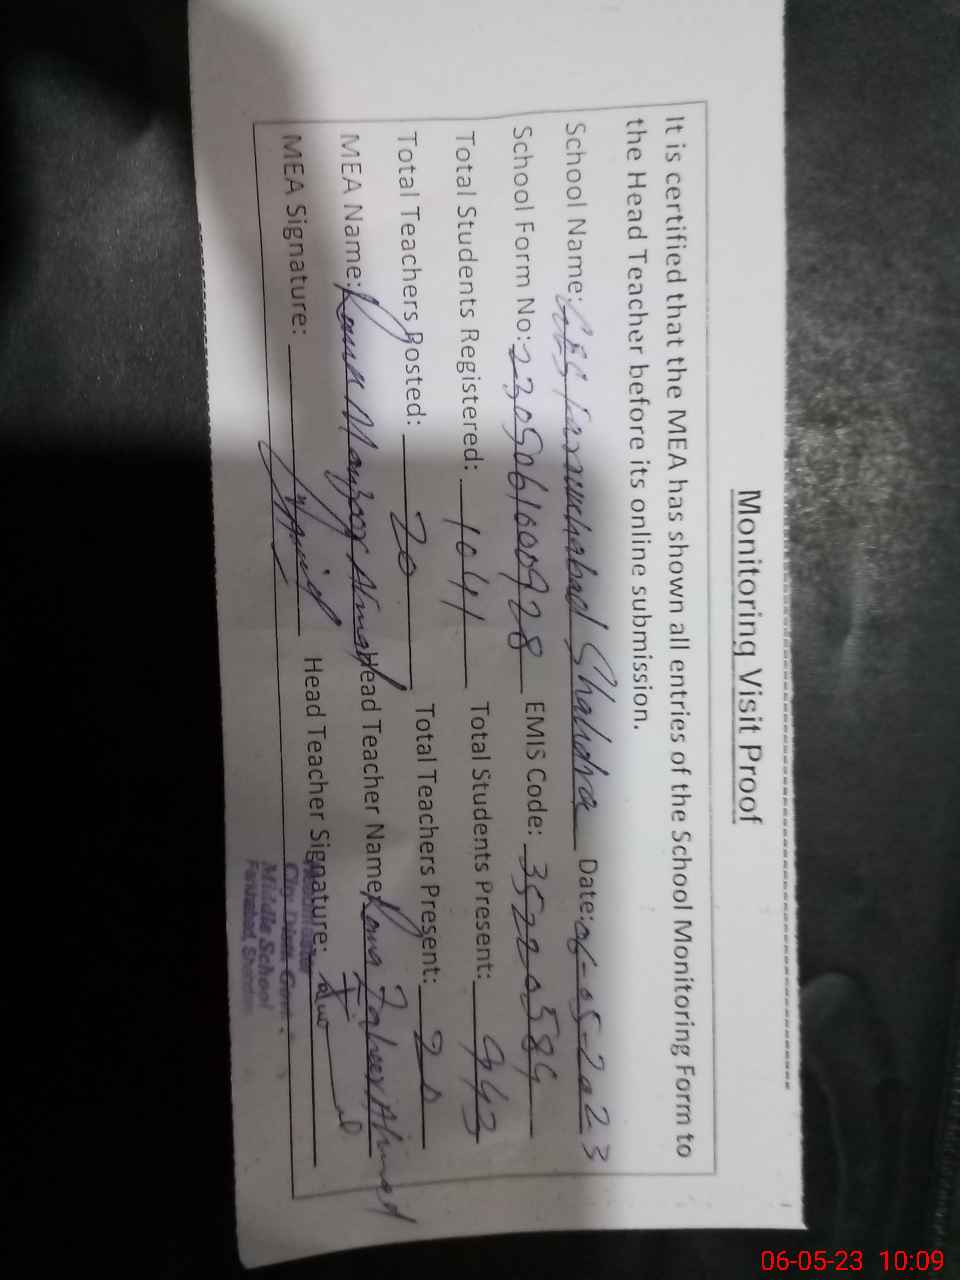 Monitoring Visit Proof
It is certified that the MEA has shown all entries of the School Monitoring Form to
the Head Teacher before its online submission.
School Name: Shahdra Date: 06-05-2023
School Form No: EMIS Code:
Total Students Registered: 1041 Total Students Present: 943
Total Teachers Posted: 20 Total Teachers Present: 20
MEA Name: Rana Manzoor Ahmad Head Teacher Name: Rana Ahmad
MEA Signature: Head Teacher Signature:
Middle School
06-05-23 10:09